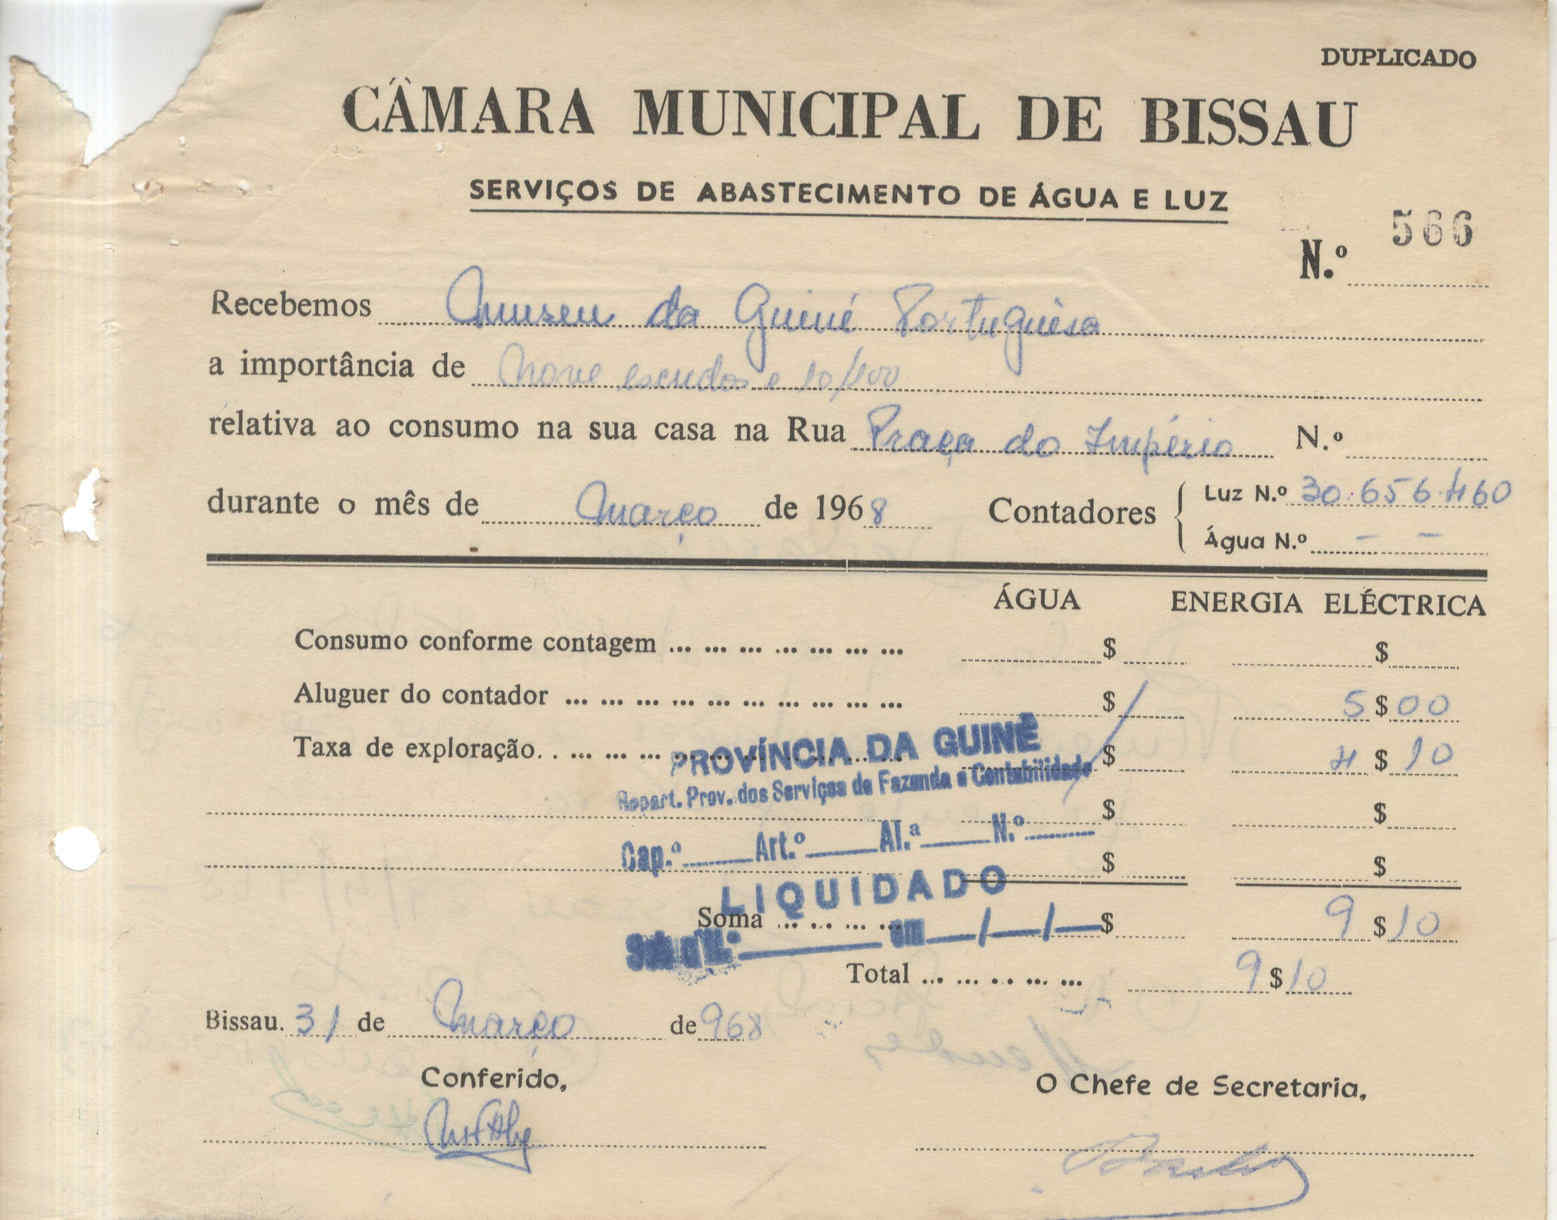 DUPLICADO
CÂMARA MUNICIPAL DE BISSAU
SERVIÇOS DE ABASTECIMENTO DE ÁGUA E LUZ
N.º 566
Recebemos Museu da Guiné Portuguesa
a importância de Nove escudos e 10/100
relativa ao consumo na sua casa na Rua Praça do Império N.º
durante o mês de Março de 1968 Contadores Luz N.º 30.656.460
Água N.º - -
ÁGUA ENERGIA ELÉCTRICA
Consumo conforme contagem ... ... ... ... ... ... ... $ $
Aluguer do contador ... ... ... ... ... ... ... ... ... ... $ 5$00
Taxa de exploração. . ... ... ... $ 4$10
PROVÍNCIA DA GUINÉ
Repart. Prov. dos Serviços de Fazenda e Contabilidade
$ $
Cap.º Art.º Al.ª N.º
$ $
LIQUIDADO
Soma ... .. ... ... $ 9$10
em / /
Total ... ... .. .. ... ... 9$10
Bissau. 31 de Março de 968
Conferido,
O Chefe de Secretaria,